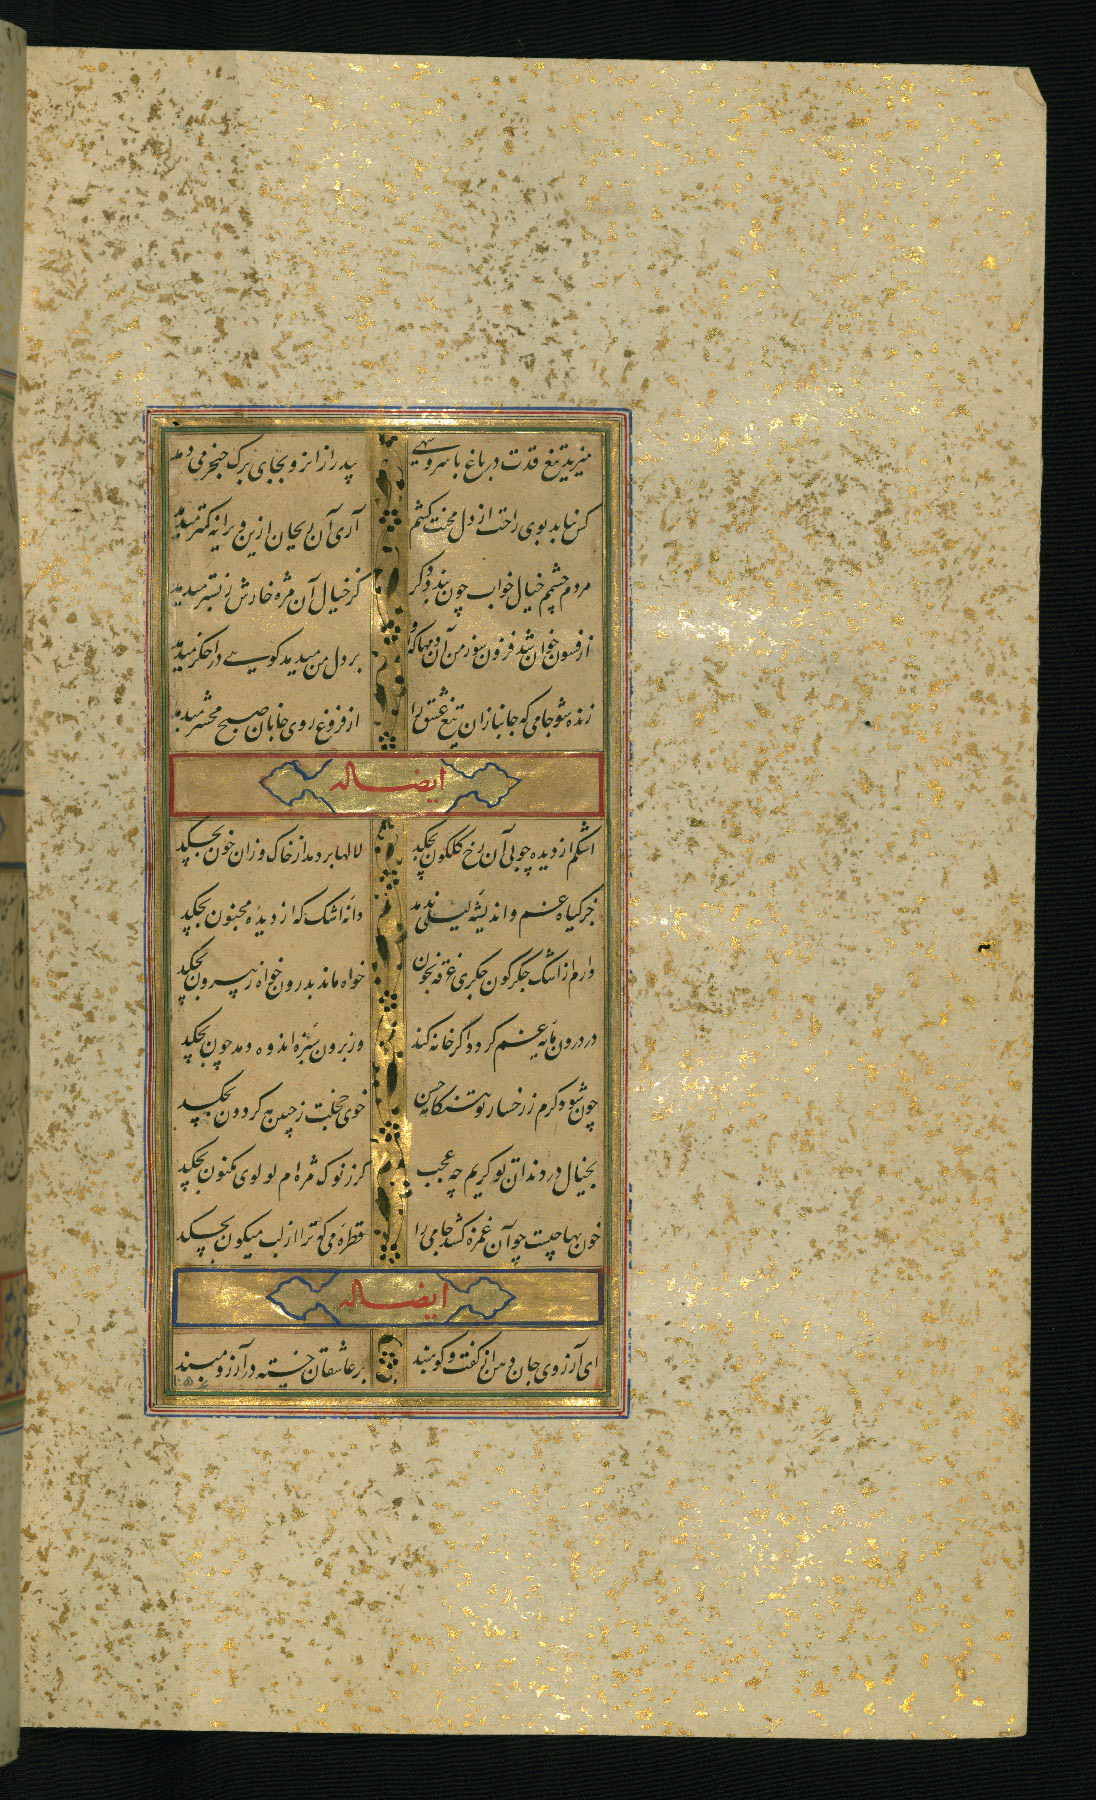 میزید تیغ قدت در باغ با سرو سهی بید را زانرو بجای برک خنجر می دمد
کس نیابد بوی راحت از دل محنت کشم آری آن ریحان ازین ویرانه کمتر میدمد
مردم چشمم خیال خواب چون بندد دکر کز خیال آن مژه خارش ز بستر میدمد
از فسون خوان شد فزون سوز من آن دمها که او بر دل من میدمد کویی در اخکر میدمد
زنده شو جامی که جانبازان تیغ عشق را از فروغ روی جانان صبح محشر میدمد
ایضا له
اشکم از دیده چو بی آن رخ کلکون بچکد لالها بر دمد از خاک و زان خون بچکد
جز کیاه غم و اندیشه لیلی ندمد دانه اشک که از دیده مجنون بچکد
دارم از اشک جکرکون جکری غرقه بخون خواه ماند بدرون خواه ز بیرون بچکد
در درون مایه غم کردد اکر خانه کند وز برون سبزه اندوه دمد چون بچکد
چون شود کرم ز رخسار تو هنکامه حسن خوی خجلت ز جبین مه کردون بچکد
بخیال در دندان تو کریم چه عجب کر ز نوک مژه ام لولوی مکنون بچکد
خون بها چیست چو آن غمزه کشد جامی را قطره می که ترا از لب میکون بچکد
ایضا له
ای آرزوی جان دهن از کفت و کو مبند بر عاشقان خسته در آرزو مبند